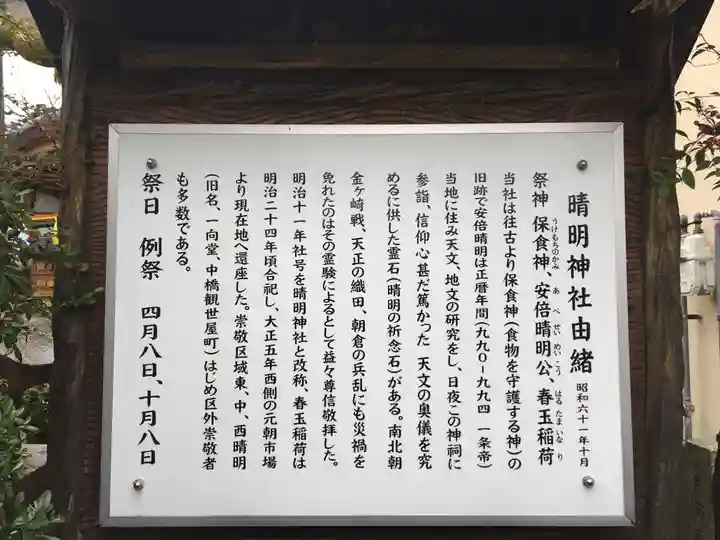 晴明神社由緒 昭和六十一年十月
祭神 保食神、安倍晴明公、春玉稲荷
うけもちのかみ あべせいめいこう はるたまいなり
当社は往古より保食神(食物を守護する神)の
旧跡で安倍晴明は正暦年間(九九0−九九四 一条帝)
当地に住み天文、地文の研究をし、日夜この神祠に
参詣、信仰心甚だ篤かった 天文の奥儀を究
めるに供した霊石(晴明の祈念石)がある。南北朝
金ヶ崎戦、天正の織田、朝倉の兵乱にも災禍を
免れたのはその霊験によるとして益々尊信敬拝した。
明治十一年社号を晴明神社と改称、春玉稲荷は
明治二十四年頃合祀し、大正五年西側の元朝市場
より現在地へ遷座した。崇敬区域東、中、西晴明
(旧名、一向堂、中橋観世屋町)はじめ区外崇敬者
も多数である。
祭日 例祭 四月八日、十月八日